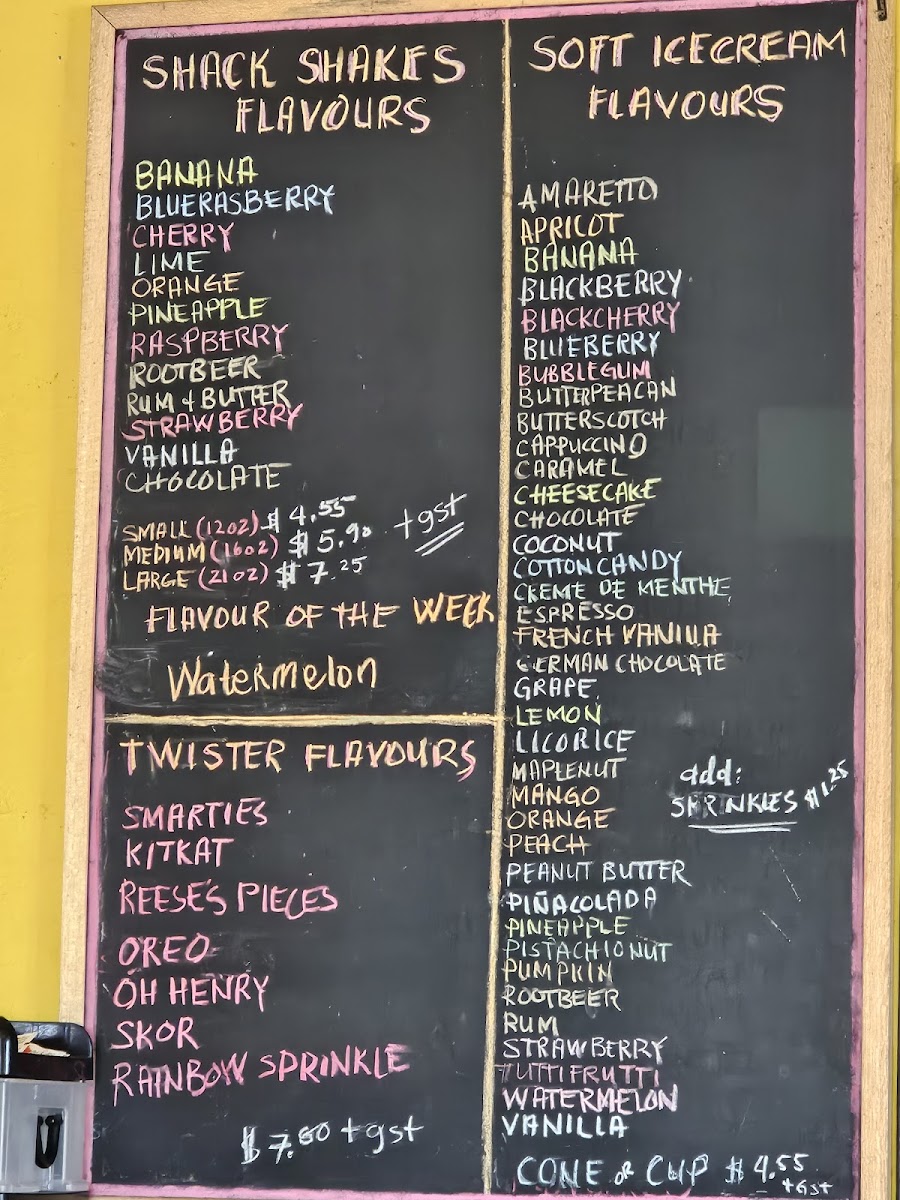 SHACK SHAKES
FLAVOURS
BANANA
BLUERASBERRY
CHERRY
LIME
ORANGE
PINEAPPLE
RASPBERRY
ROOTBEER
RUM & BUTTER
STRAWBERRY
VANILLA
CHOCOLATE
SMALL (12OZ) $ 4.55
MEDIUM (16OZ) $ 5.90
LARGE (21OZ) $ 7.25
+gst
FLAVOUR OF THE WEEK
Watermelon
TWISTER FLAVOURS
SMARTIES
KITKAT
REESE'S PIECES
OREO
OH HENRY
SKOR
RAINBOW SPRINKLE
+gst
SOFT ICECREAM
FLAVOURS
AMARETTO
APRICOT
BANANA
BLACKBERRY
BLACKCHERRY
BLUEBERRY
BUBBLEGUM
BUTTERPEACAN
BUTTERSCOTCH
CAPPUCCINO
CARAMEL
CHEESECAKE
CHOCOLATE
COCONUT
COTTONCANDY
CREME DE MENTHE
ESPRESSO
FRENCH VANILLA
GERMAN CHOCOLATE
GRAPE
LEMON
LICORICE
MAPLENUT
MANGO
ORANGE
PEACH
PEANUT BUTTER
PIÑACOLADA
PINEAPPLE
PISTACHIONUT
PUMPKIN
ROOTBEER
RUM
STRAWBERRY
TUTTIFRUTTI
WATERMELON
VANILLA
add:
SPRINKLES $1.25
CONE or CUP $4.55
+GST